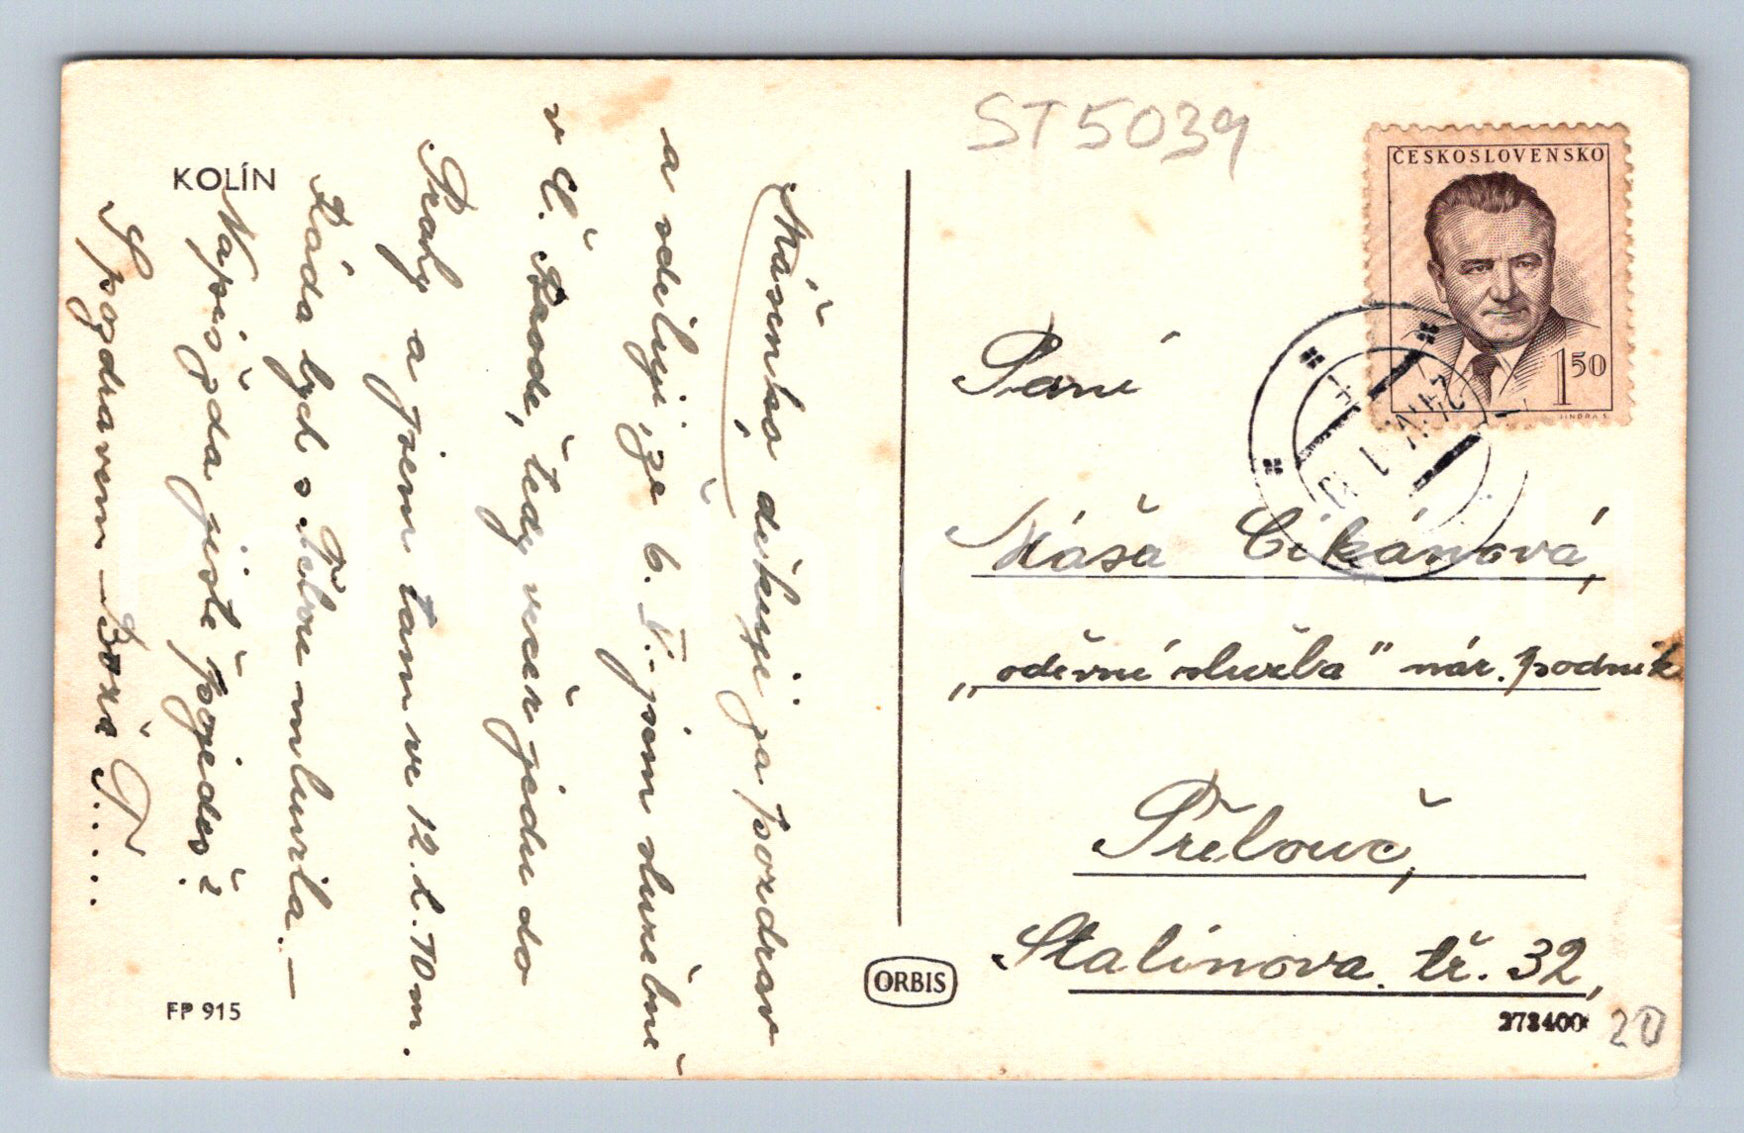 KOLÍN
Mášenko, děkuji za pozdrav
a sděluji, že 6. V. jsem služebně
v Č. Brodě, tedy večer jedu do
Prahy a jsem tam ve 12. h. 10 m.
Ráda bych s Tebou mluvila. —
Napiš, zda jistě pojedeš?
S pozdravem — Boža T.....
FP 915
ORBIS
ST5039
ČESKOSLOVENSKO
1 50
JINDRA S.
Paní
Máša Cikánová,
„oděvní služba" nár. podnik
Přelouč,
Stalinova tř. 32,
273400
20